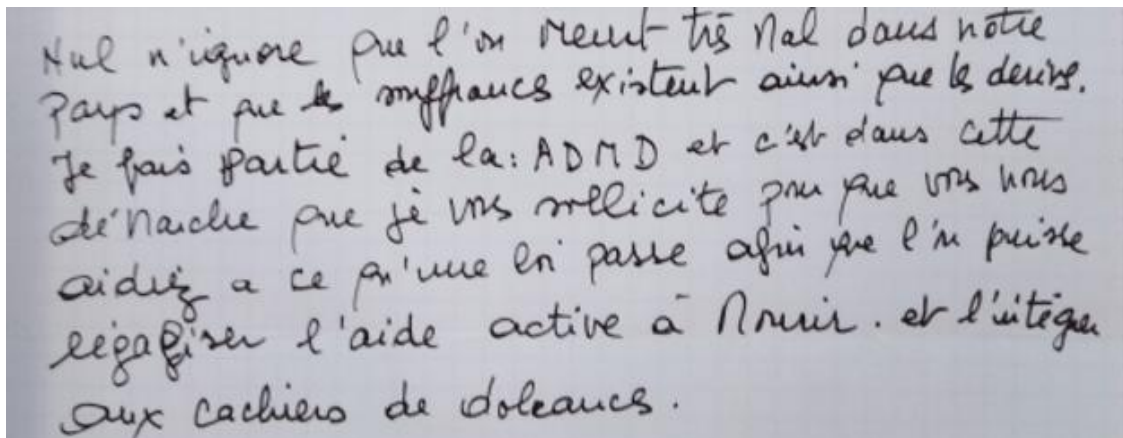 Nul n'ignore que l'on meurt très mal dans notre
pays et que les souffrances existent ainsi que les derives.
Je fais partie de la : ADMD et c'est dans cette
démarche que je vous sollicite pour que vous nous
aidiez a ce qu'une loi passe afin que l'on puisse
légaliser l'aide active à mourir. et l'intégrer
aux cachiers de doleances.